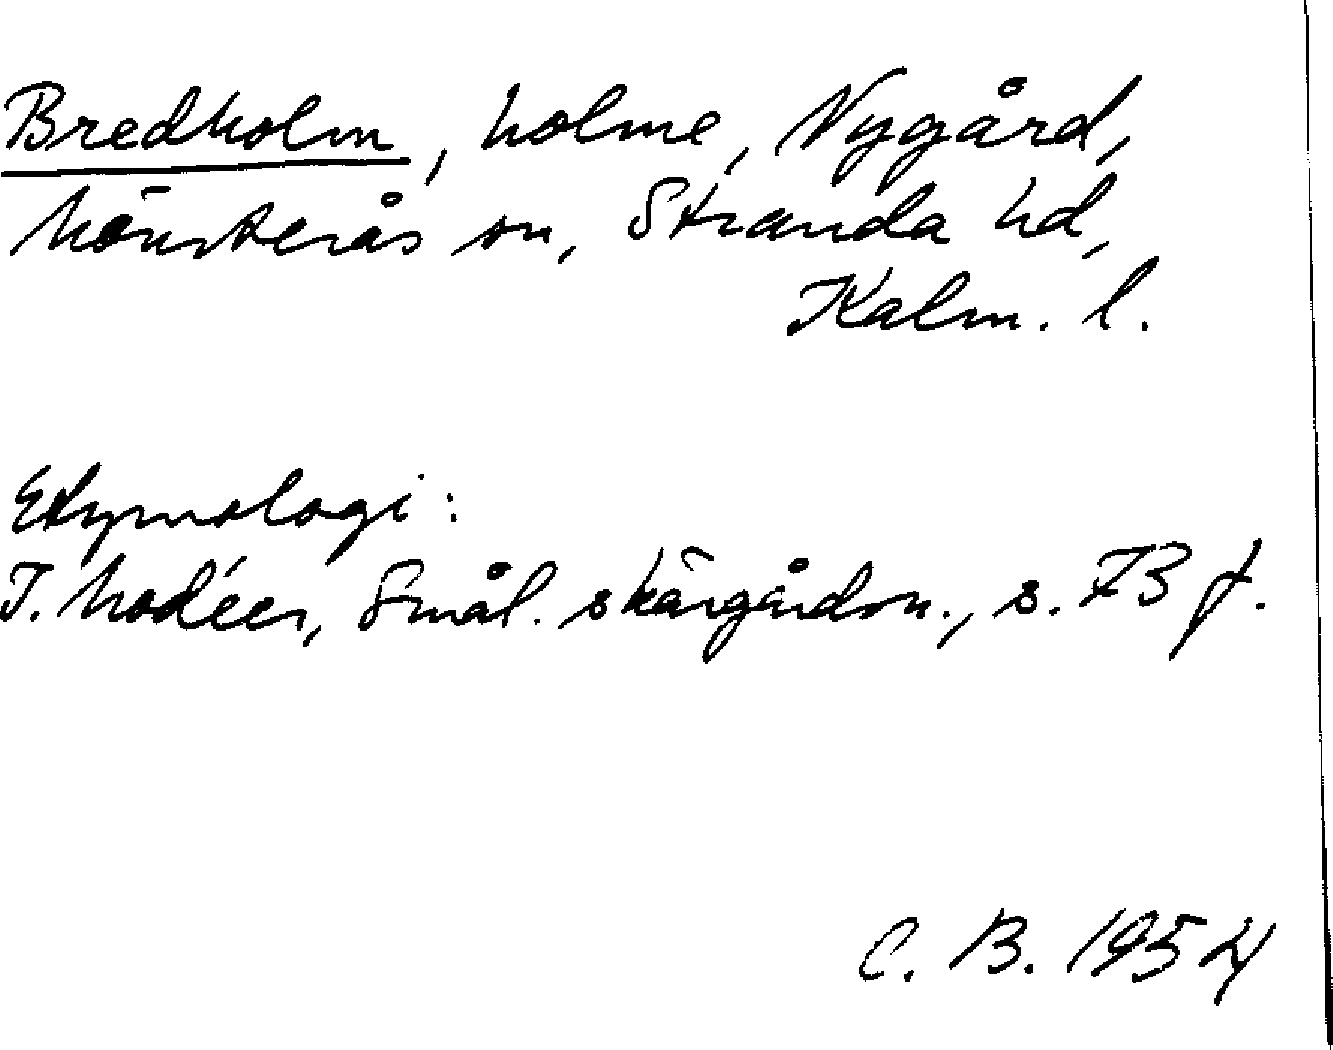 Bredholm, holme, Nygård,
Mönsterås sn, Stranda hd,
Kalm. l.
Etymologi:
I. Modéer, Smål. skärgårdsn., s. 73 f.
C. B. 1954